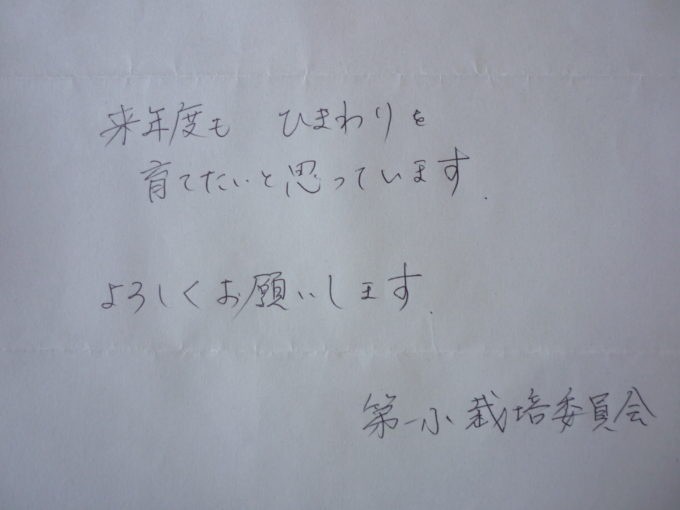 来年度も ひまわりを
育てたいと思っています.
よろしくお願いします.
第一小 栽培委員会